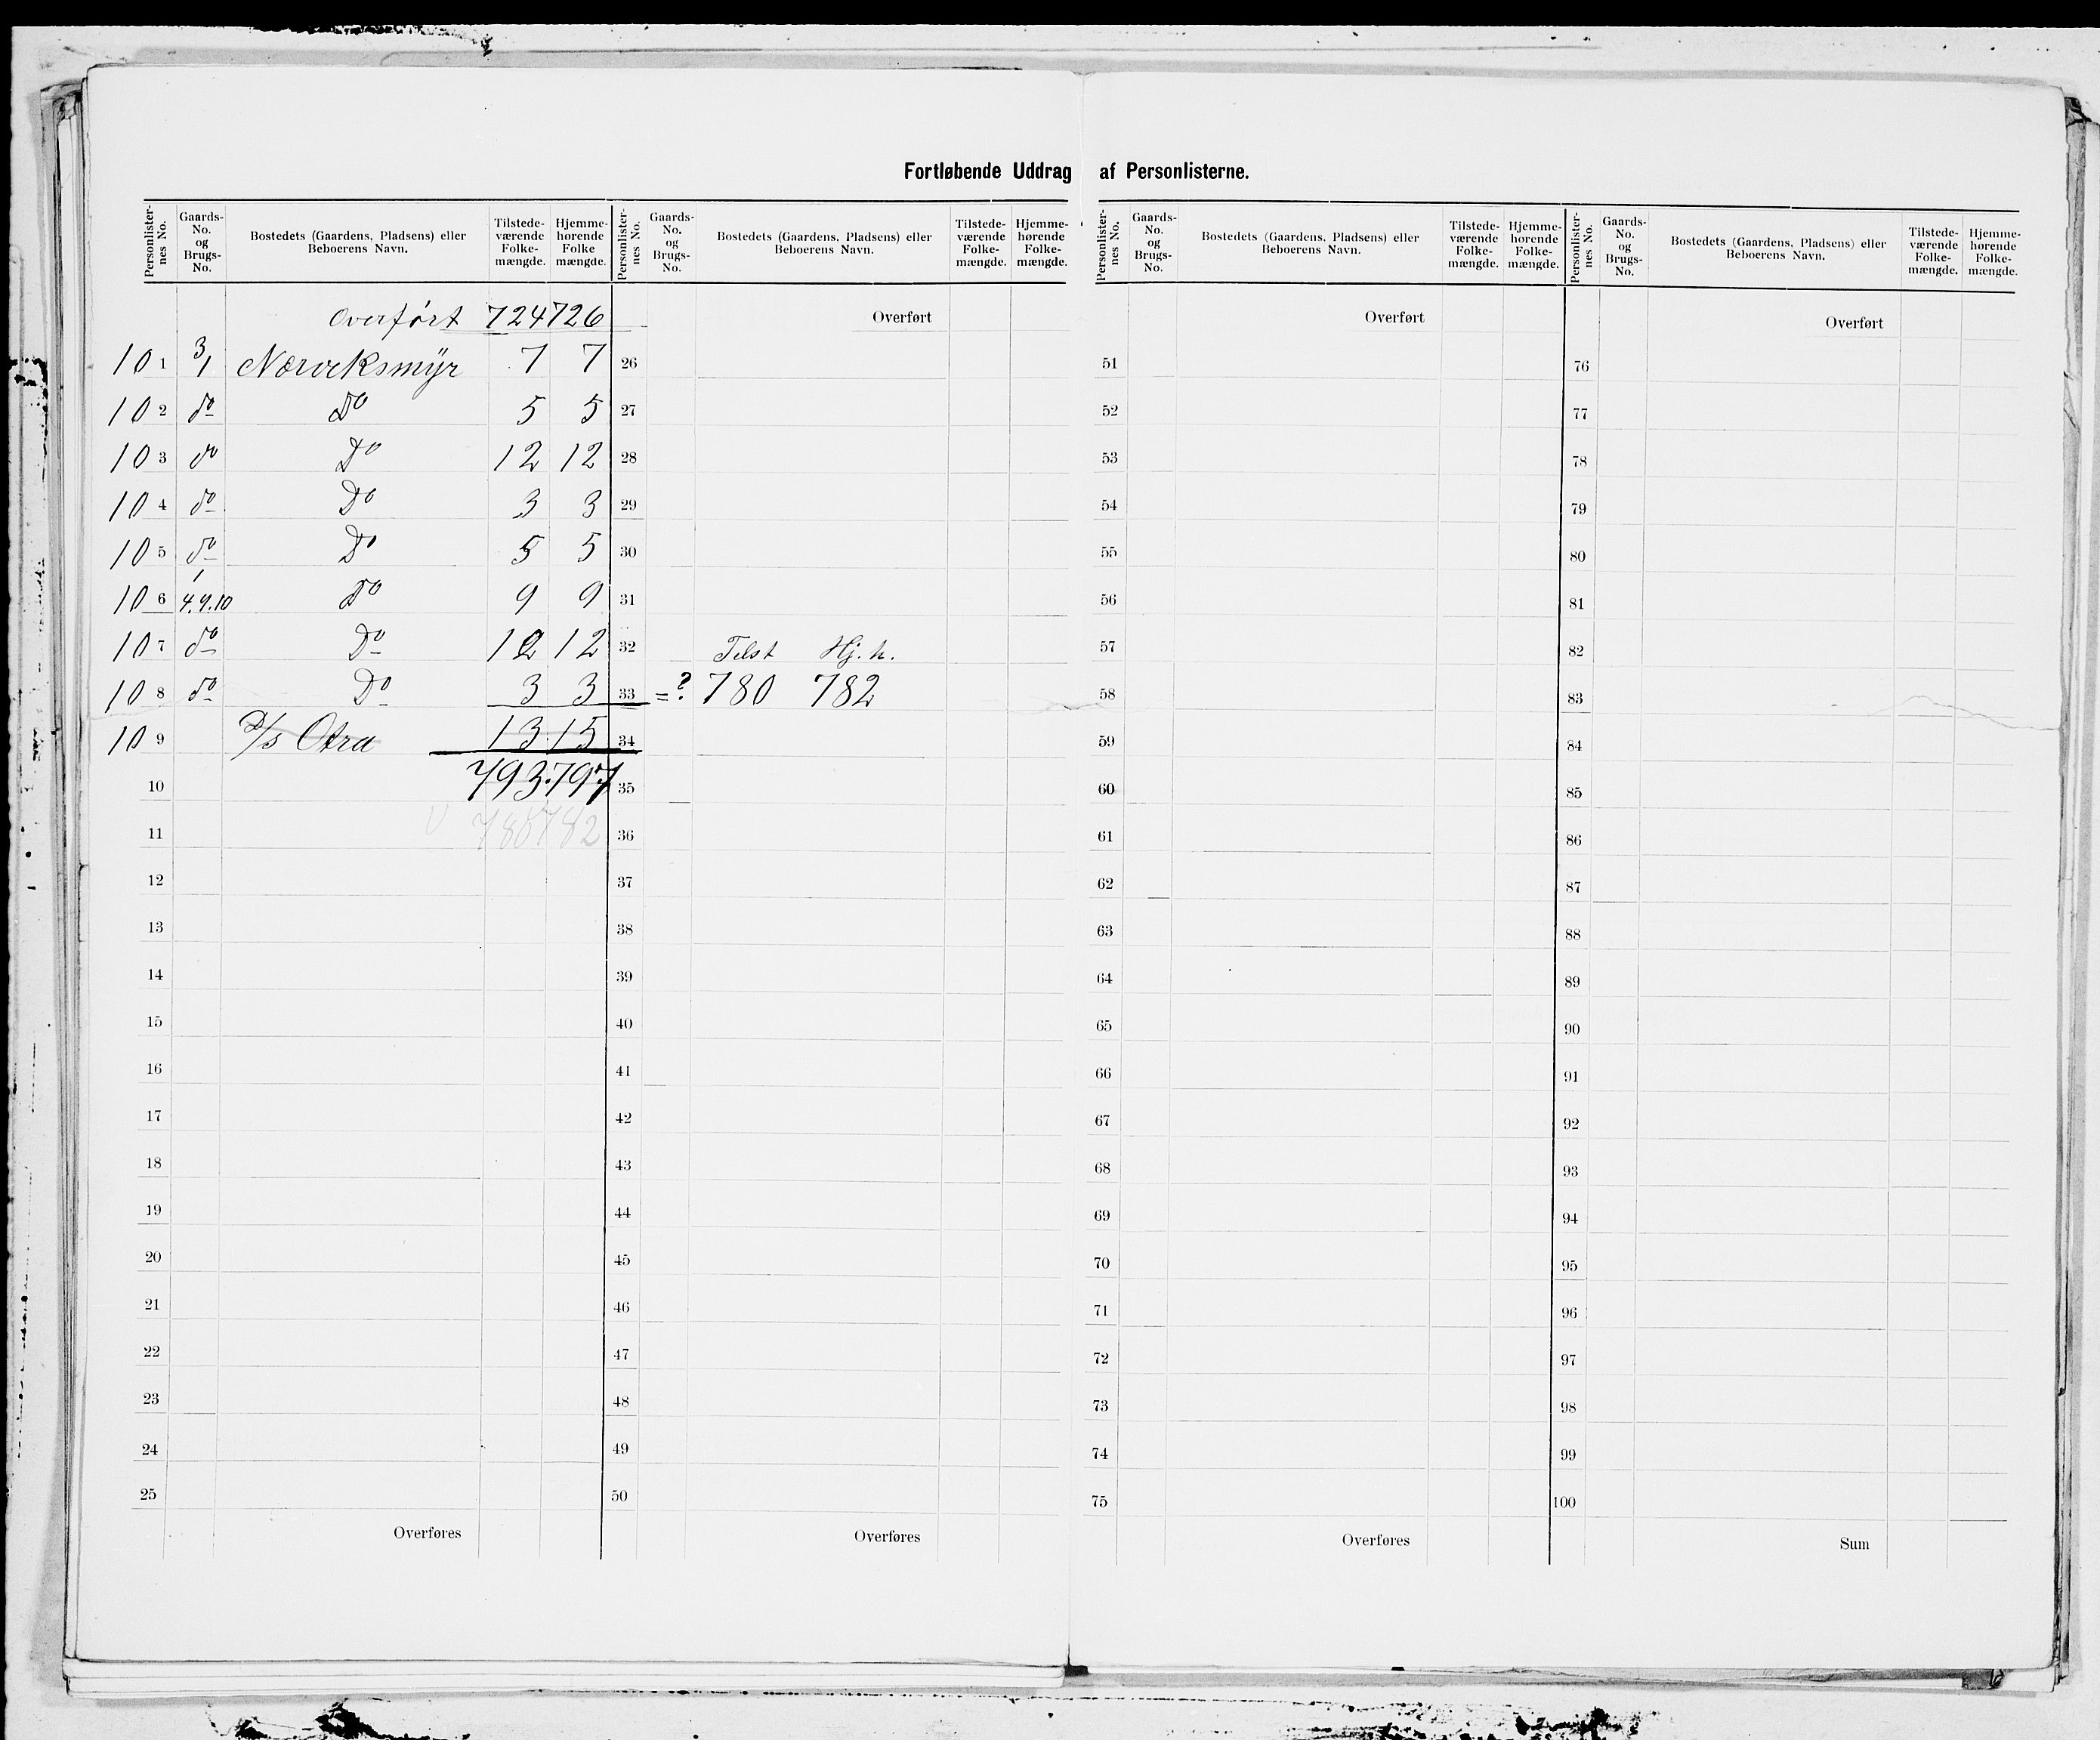 Fortløbende Uddrag af Personlisterne.
Personlister-nes No. Gaards-No. og Brugs-No. Bostedets (Gaardens, Pladsens) eller Beboerens Navn. Tilstede-værende Folke-mængde. Hjemme-hørende Folke mængde.
Overført 724 726
101 3/1 Nærviksmyr 7 7
102 do Do 5 5
103 do Do 12 12
104 do Do 3 3
105 do Do 5 5
106 4.9.10 Do 9 9
107 do Do 12 12
108 do Do 3 3
109 D/s Otra 13 15
10 793 797
11 780 782
12
13
14
15
16
17
18
19
20
21
22
23
24
25
Overføres
Personlister-nes No. Gaards-No. og Brugs-No. Bostedets (Gaardens, Pladsens) eller Beboerens Navn. Tilstede-værende Folke-mængde. Hjemme-hørende Folke-mængde.
Overført
26
27
28
29
30
31
32 Tilst Hj.h.
33 =? 780 782
34
35
36
37
38
39
40
41
42
43
44
45
46
47
48
49
50
Overføres
Personlister-nes No. Gaards-No. og Brugs-No. Bostedets (Gaardens, Pladsens) eller Beboerens Navn. Tilstede-værende Folke-mængde. Hjemme-hørende Folke-mængde.
Overført
51
52
53
54
55
56
57
58
59
60
61
62
63
64
65
66
67
68
69
70
71
72
73
74
75
Overføres
Personlister-nes No. Gaards-No. og Brugs-No. Bostedets (Gaardens, Pladsens) eller Beboerens Navn. Tilstede-værende Folke-mængde. Hjemme-hørende Folke-mængde.
Overført
76
77
78
79
80
81
82
83
84
85
86
87
88
89
90
91
92
93
94
95
96
97
98
99
100
Sum